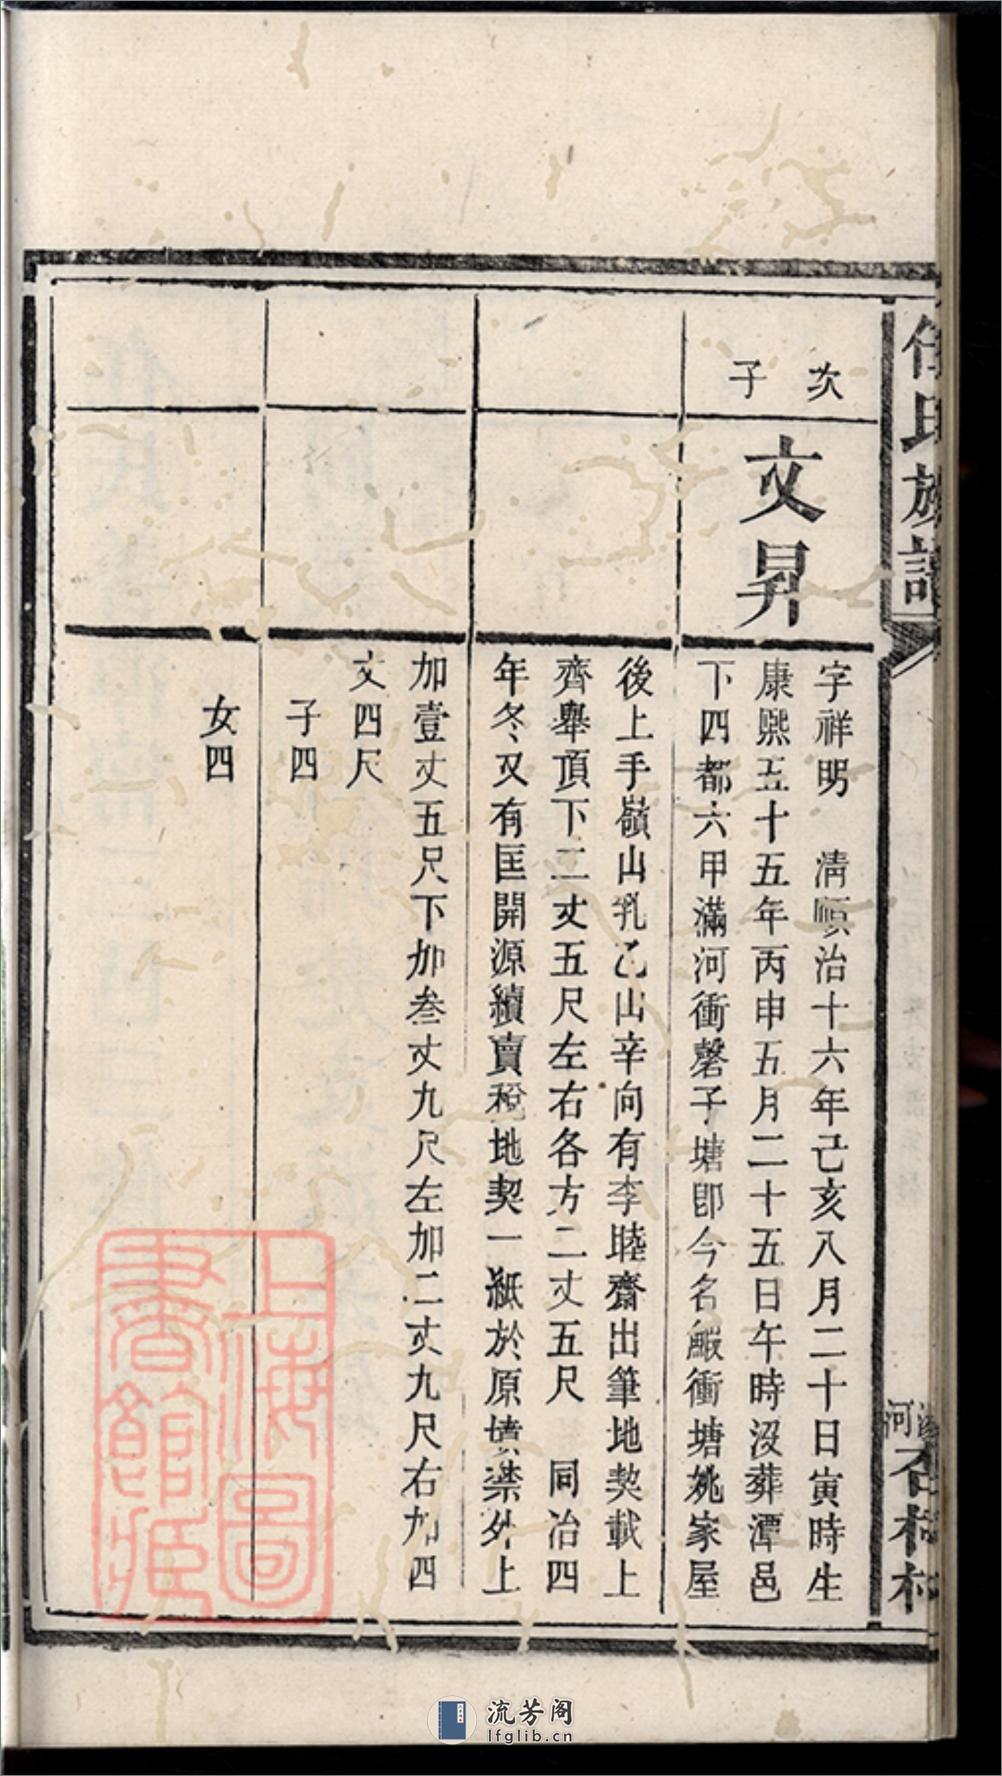 任氏族譜
次子
文昇
字祥明　清順治十六年己亥八月二十日寅時生
康熙五十五年丙申五月二十五日午時沒葬潭邑
下四都六甲滿河衝磬子塘卽今名衝塘姚家屋
後上手嶺山乳乙山辛向有李睦齋出筆地契載上
齊舉頂下二丈五尺左右各方二丈五尺　同治四
年冬又有匡開源續賣稅地契一紙於原墳禁外上
加壹丈五尺下加叁丈九尺左加二丈九尺右加四
丈四尺
子四
女四
上海圖書館藏
流芳阁
lfglib.cn